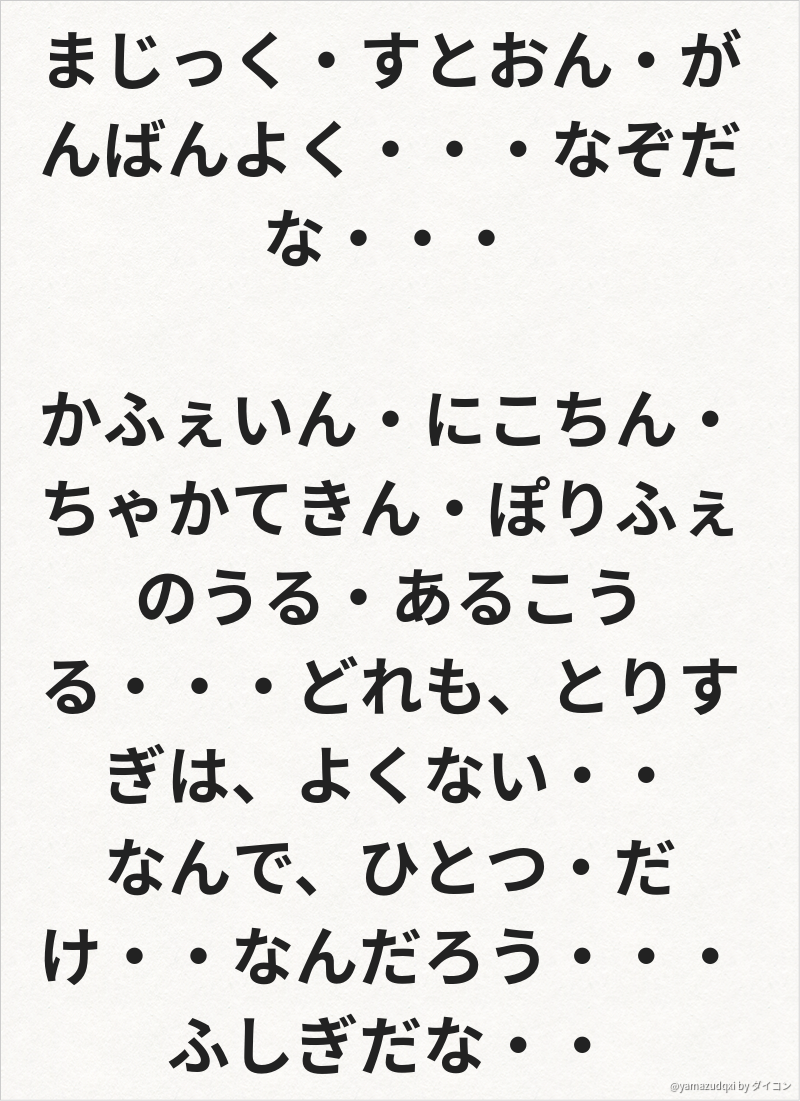 まじっく・すとおん・が
んばんよく・・・なぞだ
な・・・
かふぇいん・にこちん・
ちゃかてきん・ぽりふぇ
のうる・あるこう
る・・・どれも、とりす
ぎは、よくない・・
なんで、ひとつ・だ
け・・なんだろう・・・
ふしぎだな・・
@yamazudqxi by ダイコン